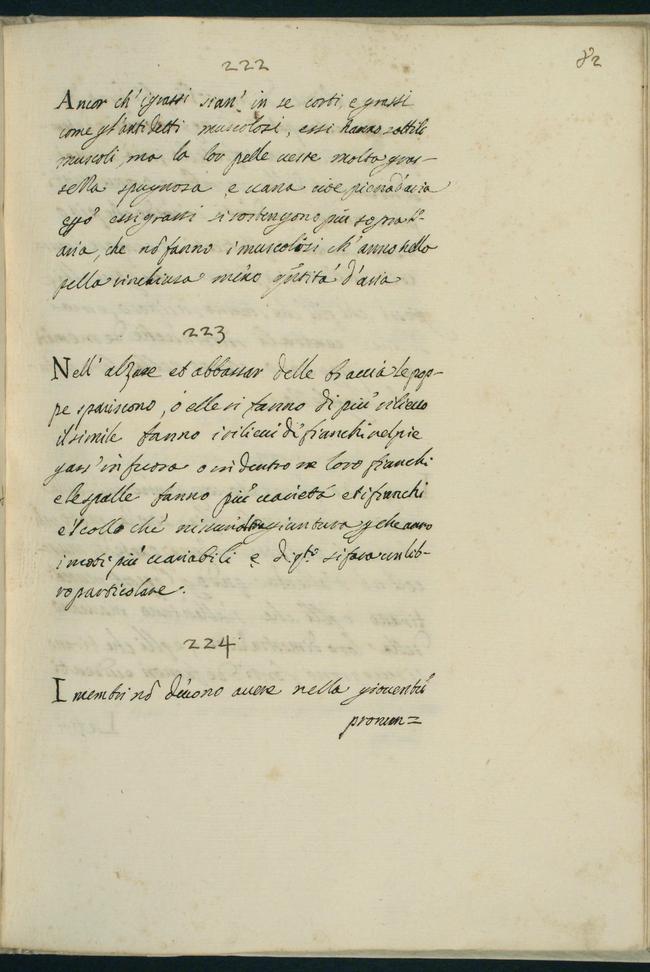 222
82
Ancor ch' i grassi sian' in se corti, e grossi
come gl'anti detti muscolosi, essi hanno sottili
muscoli, ma la lor pelle veste molta gros-
sezza spugnosa e vana cioè piena d'aria
essi grassi si sostengono più sopra l'
aria, che nõ fanno i muscolosi ch' anno nella
pelle rinchiusa meno quãtità d'aria
223
Nell' alzare et abbassar delle braccia le pop-
pe spariscono, ó elle si fanno di piú rilievo
il simile fanno i rilievi de' fianchi nel pie
gars' in fuora o in dentro ne loro fianchi
e le spalle fanno più varietà et i fianchi
e 'l collo che nisun' giuntura che anno
i moti piú variabili e di qto si farà un lib-
ro particolare.
224
I membri nõ devono avere nella gioventù
pronun=